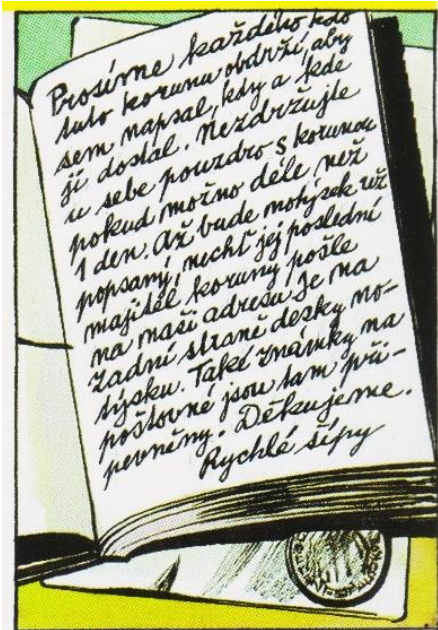 Prosíme každého kdo
tuto korunu obdrží, aby
sem napsal, kdy a kde
ji dostal. Nezdržujte
u sebe pouzdro s korunou
pokud možno déle než
1 den. Až bude notýsek už
popsaný, nechť jej poslední
majitel koruny pošle
na naši adresu. Je na
zadní straně desky no-
týsku. Také známky na
poštovné jsou tam při-
pevněny. Děkujeme.
Rychlé šípy